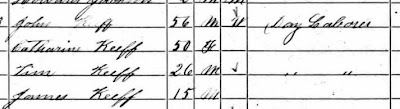 John Keeff 56 M W Day Laborer
Catharine Keeff 50 F
Tim Keeff 26 M " "
James Keeff 15 M